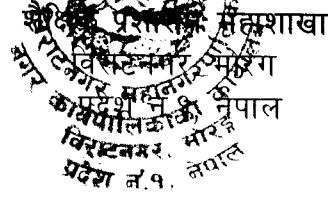 प्रशासन महाशाखा
विराटनगर, मोरंग
प्रदेश नं. १, नेपाल
विराटनगर महानगरपालिका
नगर कार्यपालिकाको
विराटनगर, मोरङ्ग
प्रदेश नं. १, नेपाल